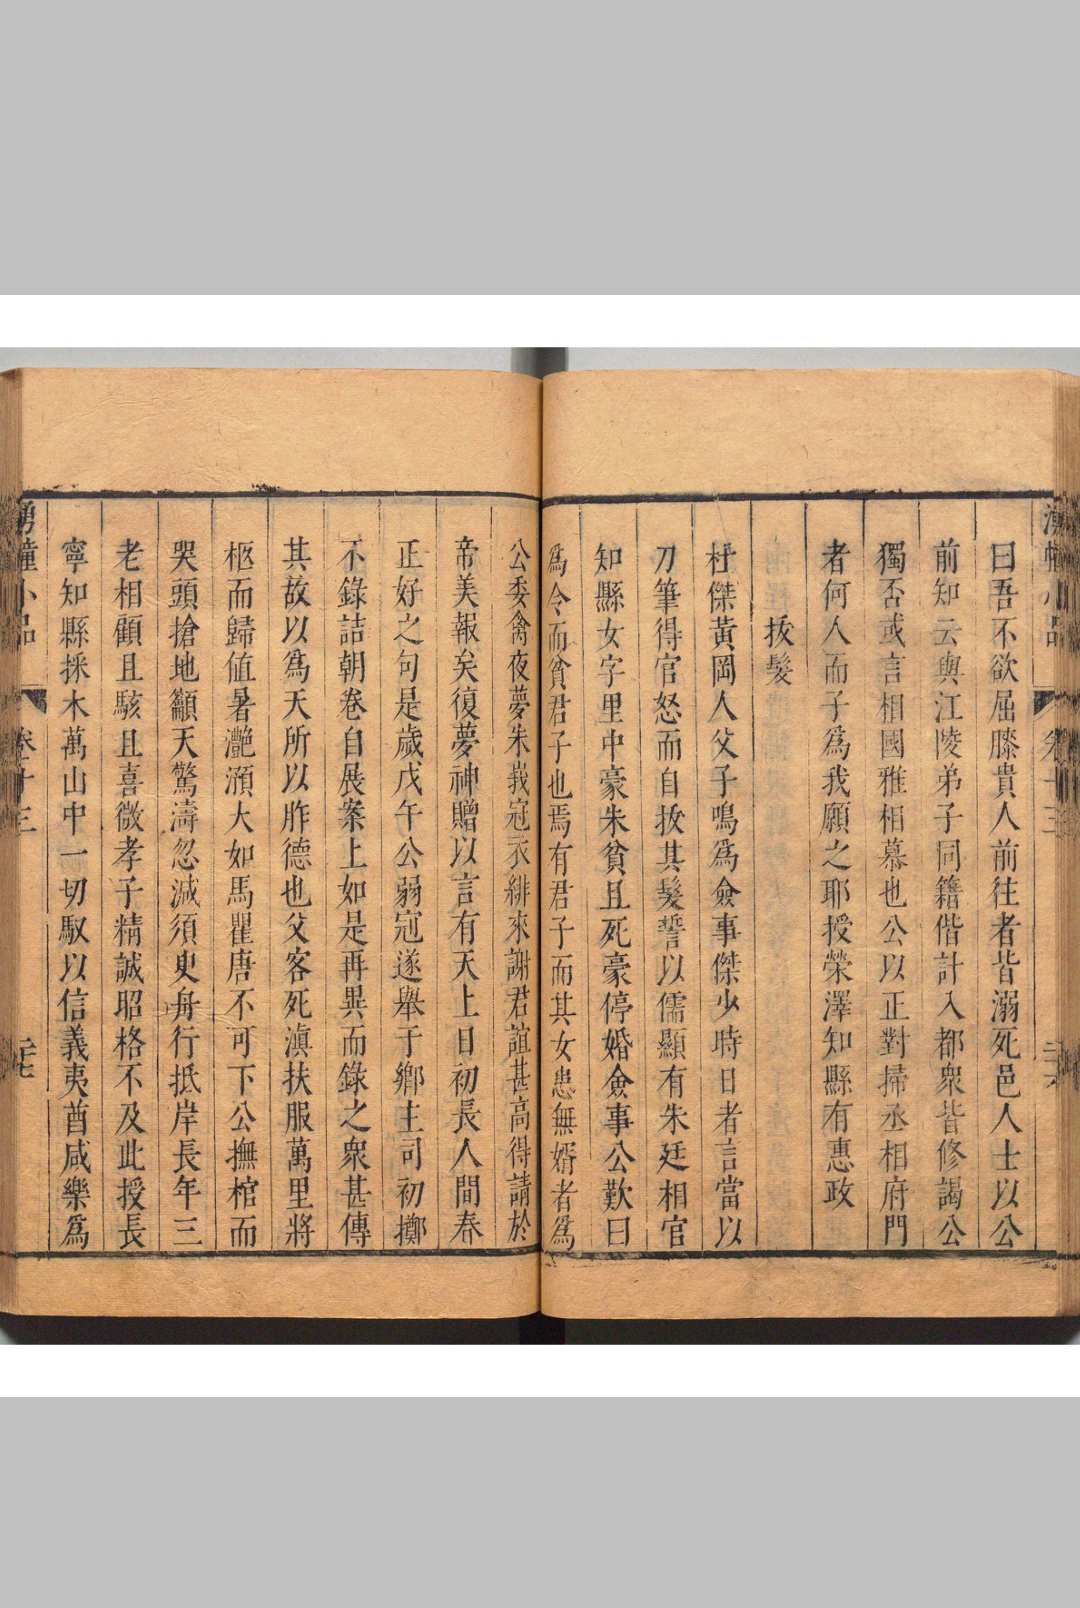 湧幢小品
卷十三
二十六
曰吾不欲屈膝貴人前往者皆溺死邑人士以公
前知云與江陵弟子同籍偕計入都衆皆修謁公
獨否或言相國雅相慕也公以正對掃丞相府門
者何人而子爲我願之耶授榮澤知縣有惠政
拔髮
杜傑黃岡人父子鳴爲僉事傑少時日者言當以
刀筆得官怒而自拔其髮誓以儒顯有朱廷相官
知縣女字里中豪朱貧且死豪停婚僉事公歎曰
爲令而貧君子也焉有君子而其女患無婿者爲
公委禽夜夢朱峩冠衣緋來謝君誼甚高得請於
帝美報矣復夢神贈以言有天上日初長人間春
正好之句是歲戊午公弱冠遂舉于鄉主司初擲
不錄詰朝卷自展案上如是再異而錄之衆甚傳
其故以爲天所以胙德也父客死滇扶服萬里將
柩而歸值暑灧澦大如馬瞿唐不可下公撫棺而
哭頭搶地籲天驚濤忽減須臾舟行抵岸長年三
老相顧且駭且喜微孝子精誠昭格不及此授長
寧知縣採木萬山中一切馭以信義夷酋咸樂爲
湧幢小品
卷十三
二十七